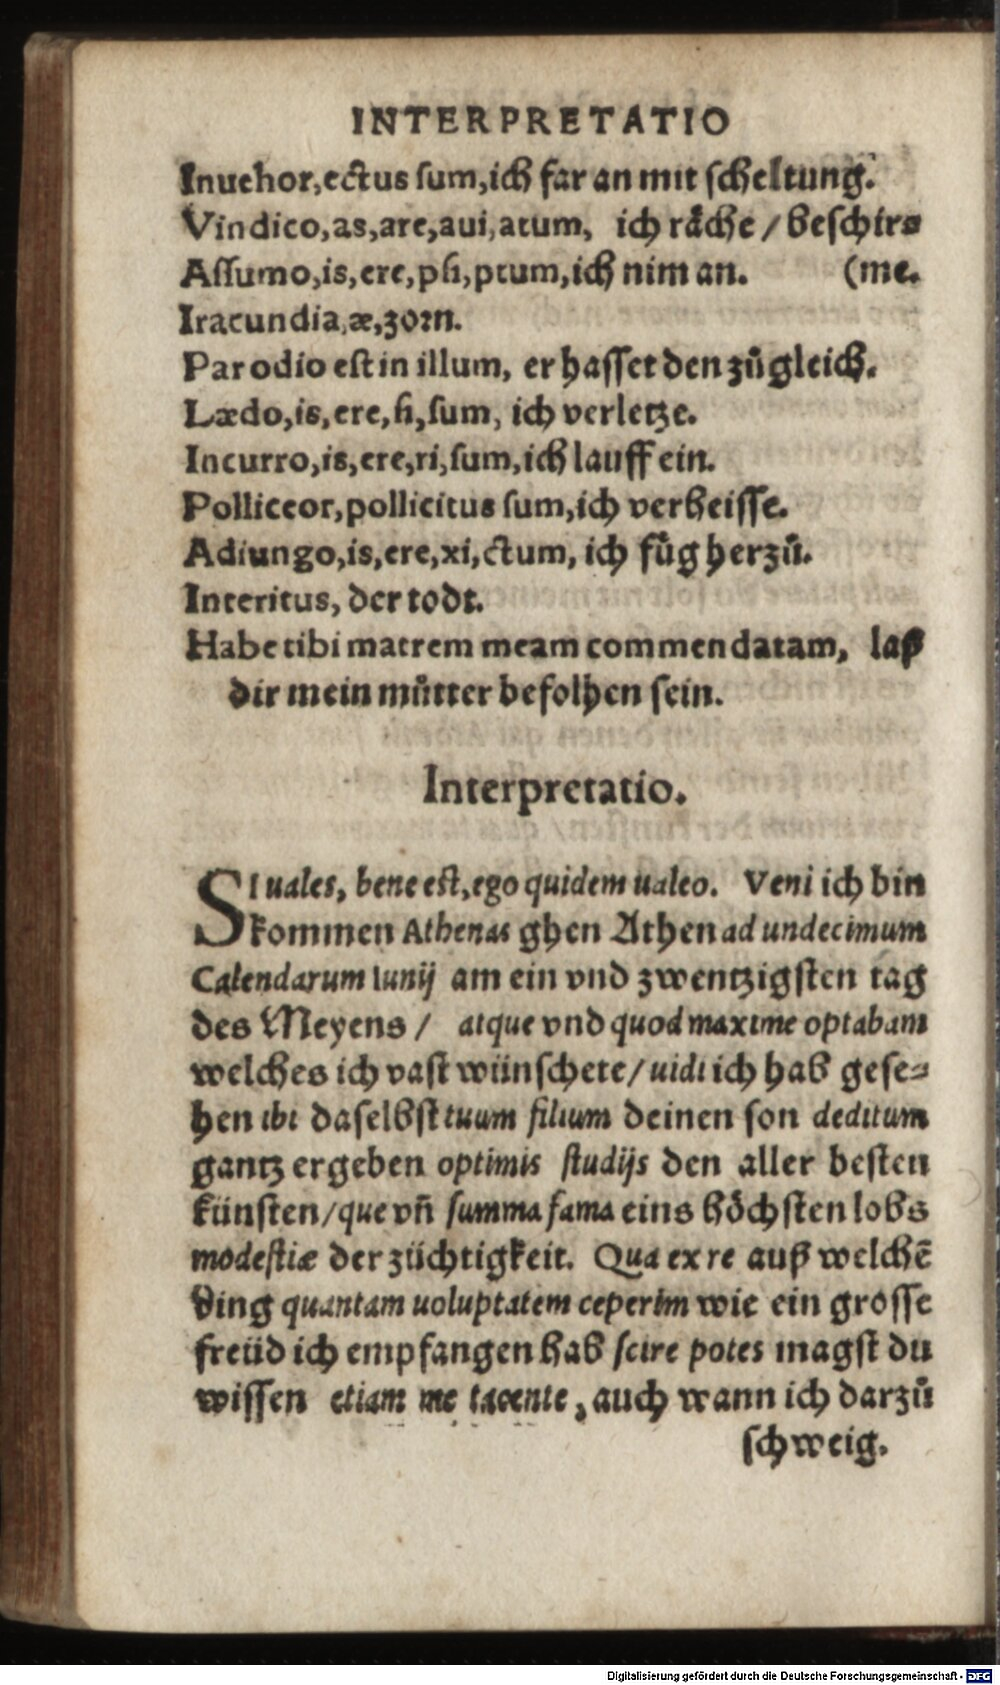 INTERPRETATIO
Inuehor, ectus sum, ich far an mit scheltung.
Vindico, as, are, aui, atum, ich råche / beschir⸗
Assumo, is, ere, psi, ptum, ich nim an. (me.
Iracundia, æ, zorn.
Par odio est in illum, er hasset den zůgleich.
Lædo, is, ere, si, sum, ich verletze.
Incurro, is, ere, ri, sum, ich lauff ein.
Polliceor, pollicitus sum, ich verheisse.
Adiungo, is, ere, xi, ctum, ich fůg herzů.
Interitus, der todt.
Habe tibi matrem meam commendatam, laß
dir mein můtter befolhen sein.
Interpretatio.
SI uales, bene est, ego quidem ualeo. Veni ich bin
kommen Athenas ghen Athen ad undecimum
Calendarum Iunij am ein vnd zwentzigsten tag
des Meyens / atque vnd quod maxime optabam
welches ich vast wünschete / uidi ich hab gese⸗
hen ibi daselbst tuum filium deinen son deditum
gantz ergeben optimis studijs den aller besten
künsten / que vñ summa fama eins höchsten lobs
modestiæ der züchtigkeit. Qua ex re auß welchẽ
ding quantam uoluptatem ceperim wie ein grosse
freüd ich empfangen hab scire potes magst du
wissen etiam me tacente, auch wann ich darzů
schweig.
Digitalisierung gefördert durch die Deutsche Forschungsgemeinschaft - DFG